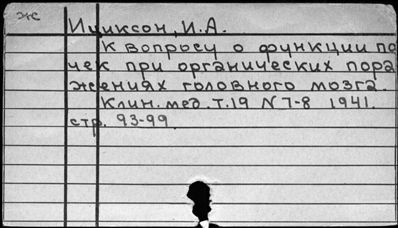 ж
Ициксон, И.А.
К вопросу о функции по
чек при органических пора
жениях головного мозга.
Клин. мед. Т.19 N 7-8 1941.
стр. 93-99.